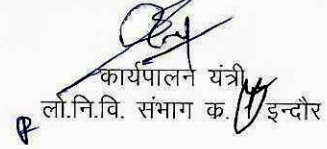 कार्यपालन यंत्री
लो.नि.वि. संभाग क. इन्दौर